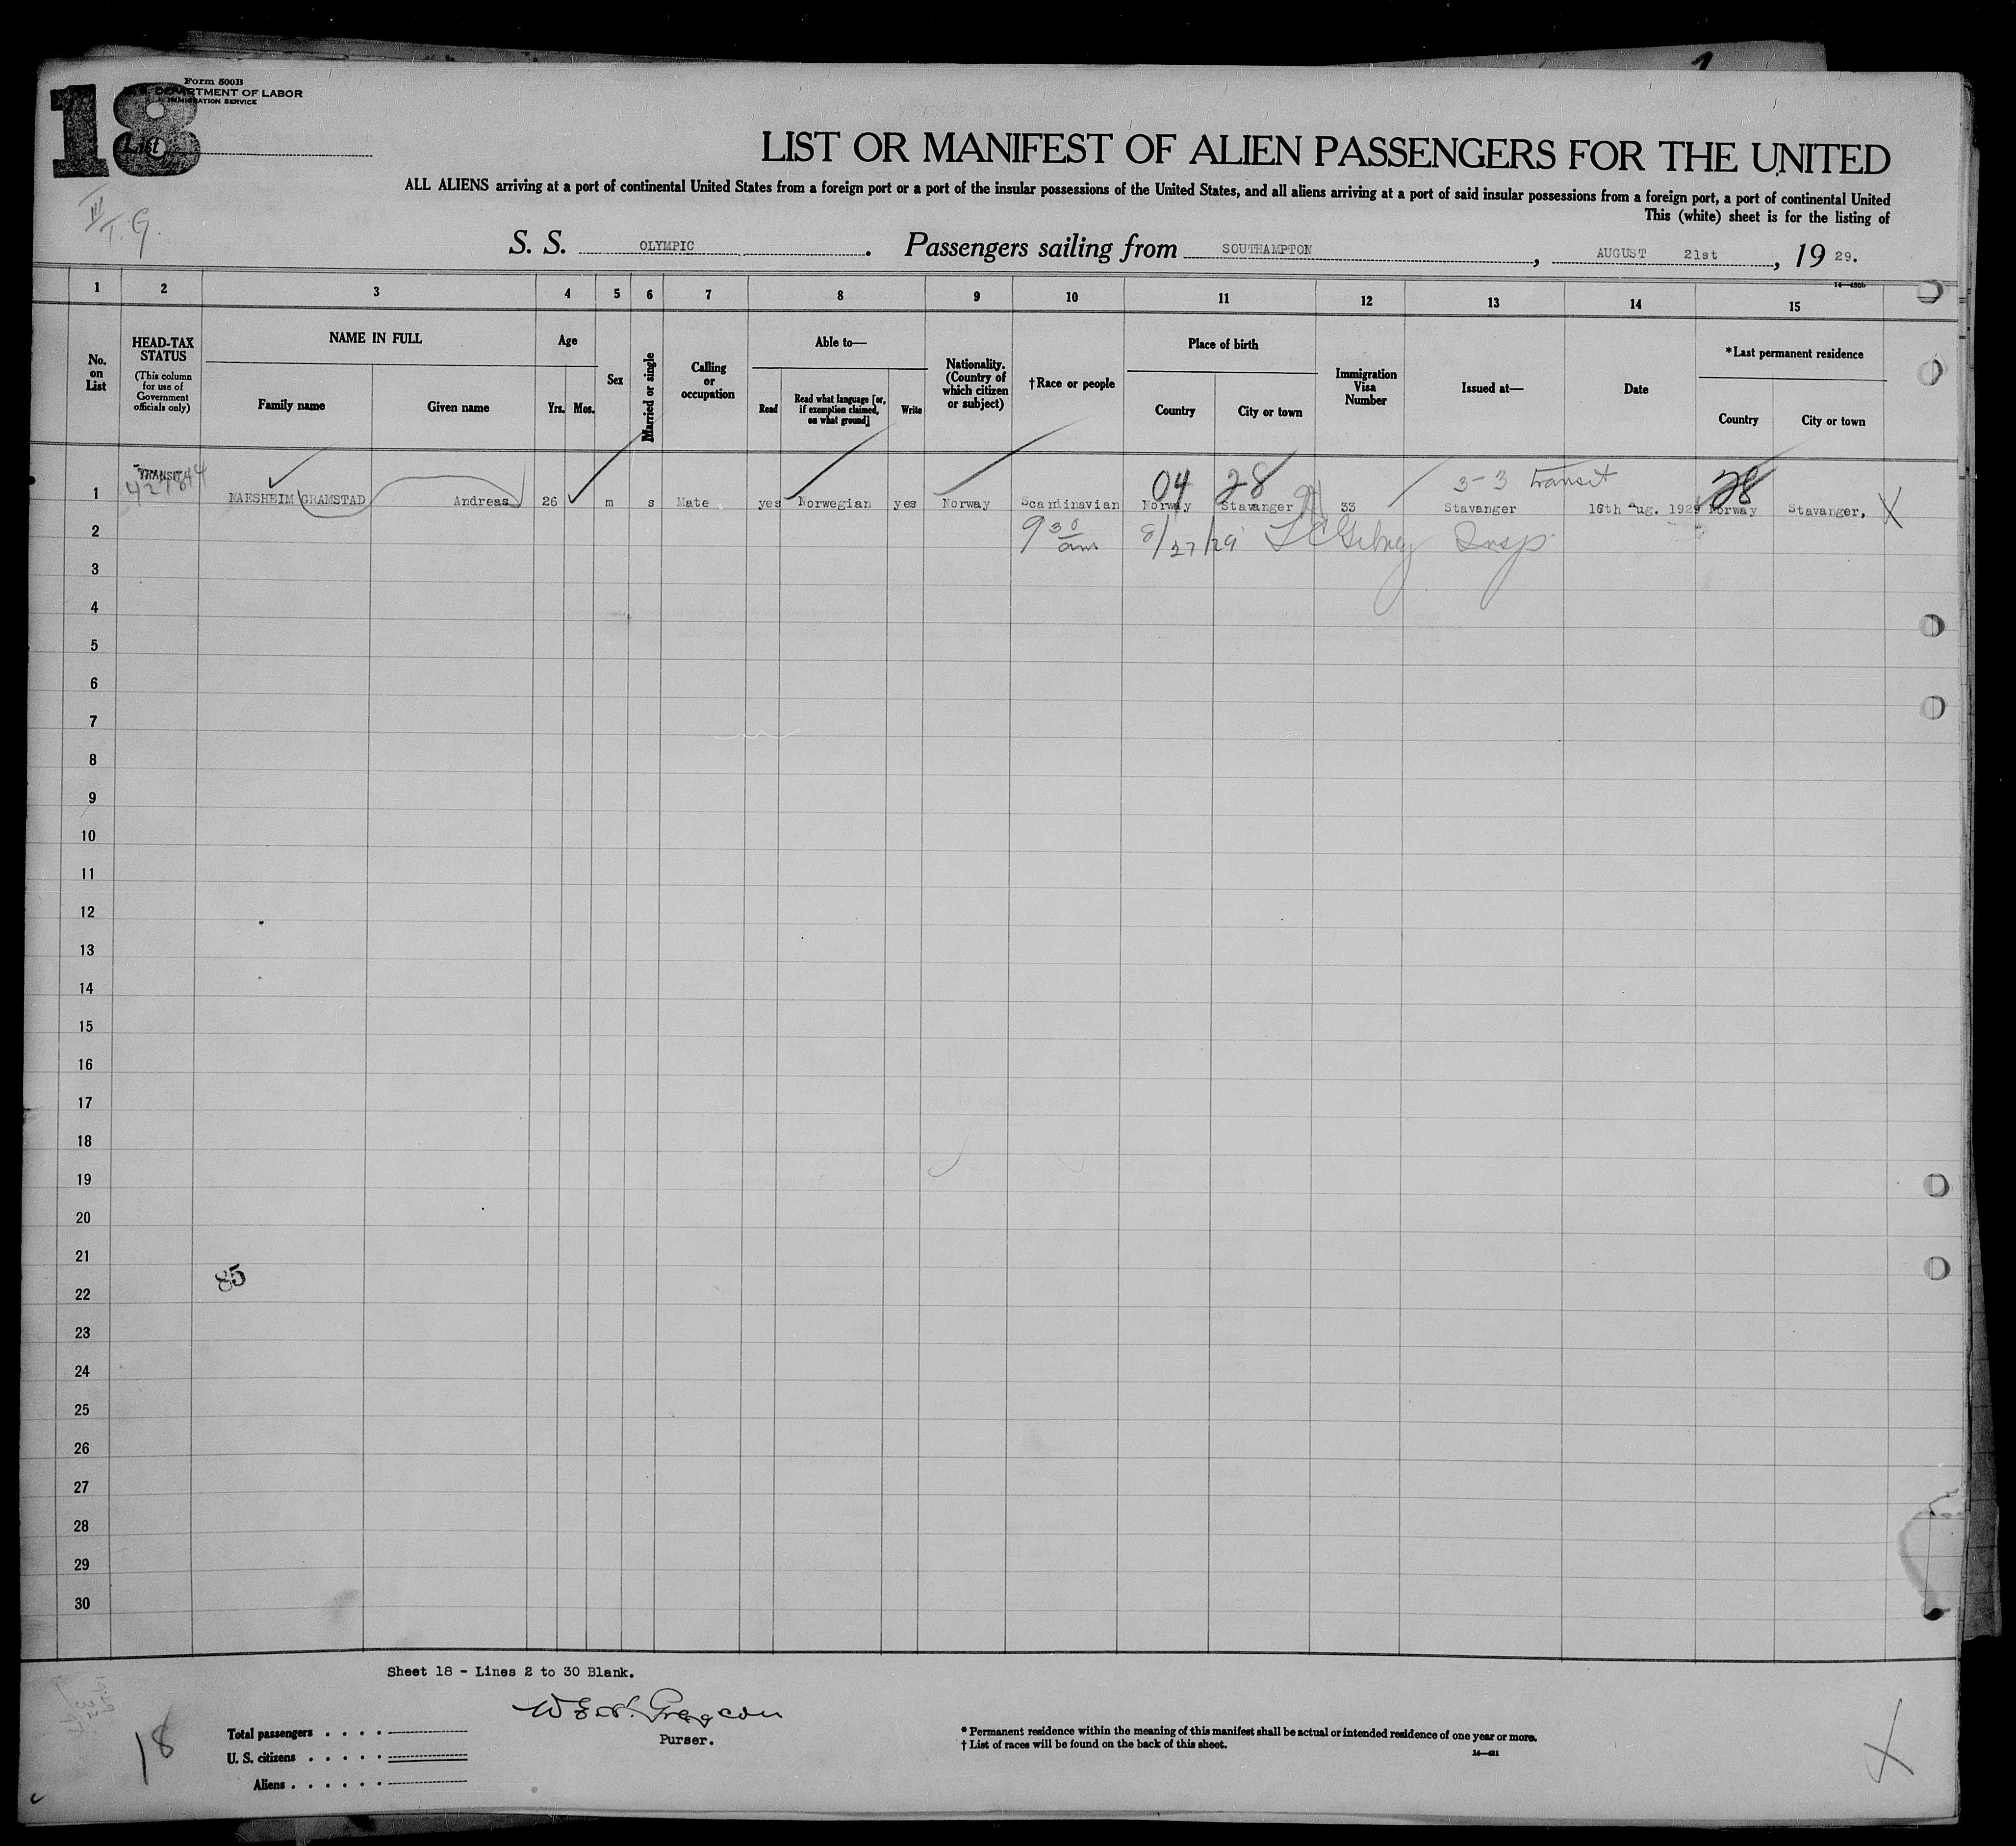 18
Form 500B
U. S. DEPARTMENT OF LABOR
IMMIGRATION SERVICE
List
III
T. G.
LIST OR MANIFEST OF ALIEN PASSENGERS FOR THE UNITED
ALL ALIENS arriving at a port of continental United States from a foreign port or a port of the insular possessions of the United States, and all aliens arriving at a port of said insular possessions from a foreign port, a port of continental United
This (white) sheet is for the listing of
S. S. OLYMPIC. Passengers sailing from SOUTHAMPTON, AUGUST 21st, 19 29.
14—430b
1 2 3 4 5 6 7 8 9 10 11 12 13 14 15
No. on List
HEAD-TAX STATUS
(This column for use of Government officials only)
NAME IN FULL
Family name Given name
Age
Yrs. Mos.
Sex
Married or single
Calling or occupation
Able to—
Read
Read what language [or, if exemption claimed, on what ground]
Write
Nationality. (Country of which citizen or subject)
†Race or people
Place of birth
Country City or town
Immigration Visa Number
Issued at—
Date
*Last permanent residence
Country City or town
TRANSIT 04 28 3-3 transit 28
1 NAESHEIM GRAMSTAD Andreas 26 m s Mate yes Norwegian yes Norway Scandinavian Norway Stavanger 33 Stavanger 16th Aug. 1929 Norway Stavanger, X
2 9 30 am 8/27/29 Insp
3
4
5
6
7
8
9
10
11
12
13
14
15
16
17
18
19
20
21
85
22
23
24
25
26
27
28
29
30
Sheet 18 - Lines 2 to 30 Blank.
Purser.
18
Total passengers . . . .
U. S. citizens . . . . .
Aliens . . . . . .
* Permanent residence within the meaning of this manifest shall be actual or intended residence of one year or more.
† List of races will be found on the back of this sheet.
14—431
X